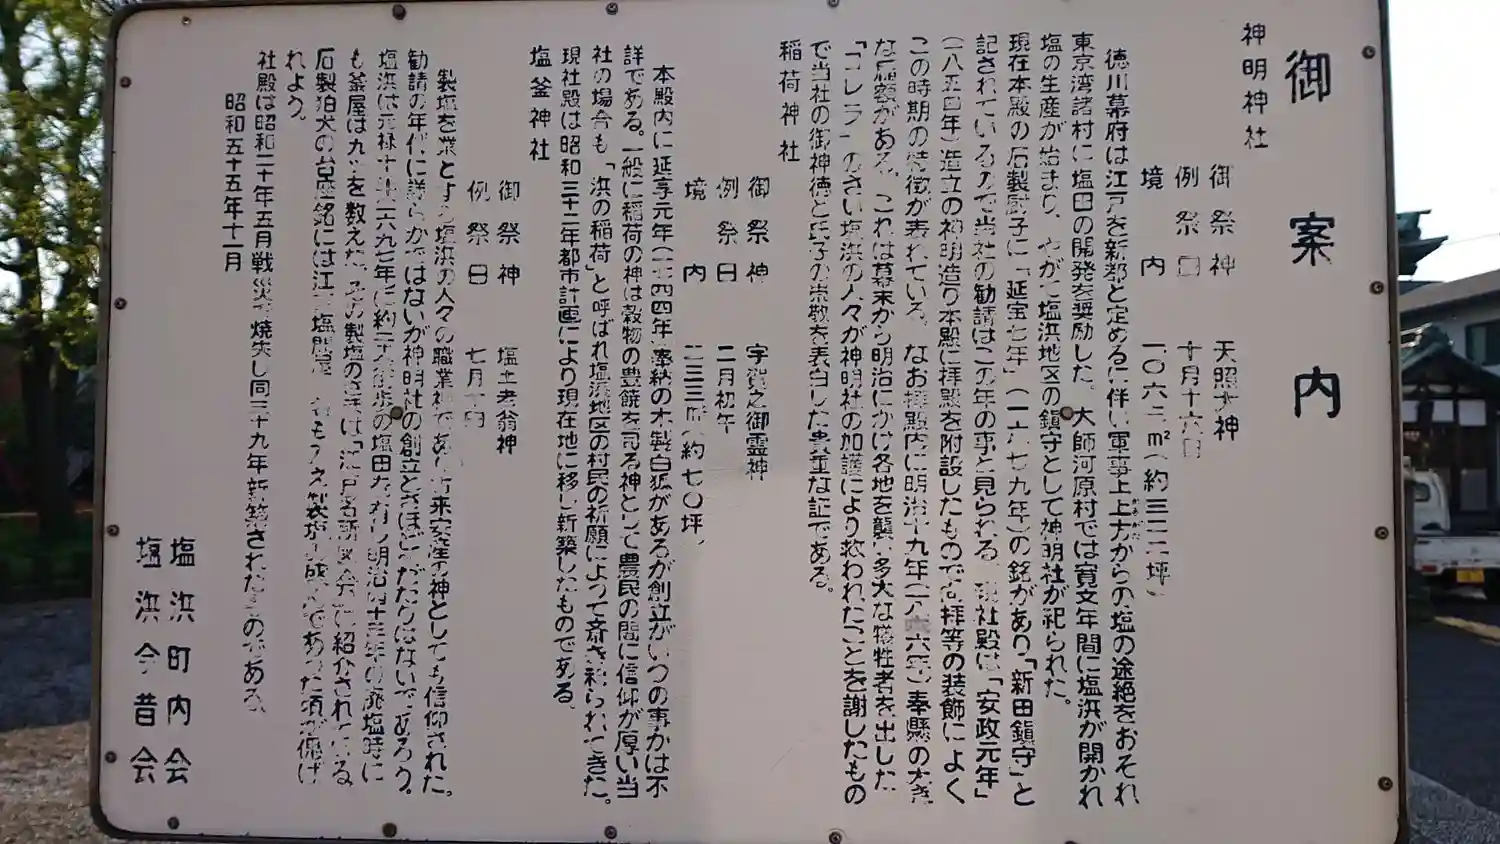 御案内
神明神社
御祭神 天照大神
例祭日 十月十六日
境内 一〇六二㎡(約三二二坪)
徳川幕府は江戸を新都と定めるに伴い軍事上上方からの塩の途絶をおそれ
東京湾諸村に塩田の開発を奨励した。大師河原村では寛文年間に塩浜が開かれ
塩の生産が始まり、やがて塩浜地区の鎮守として神明社が祀られた。
現在本殿の石製厨子に「延宝七年」(一六七九年)の銘があり「新田鎮守」と
記されているので当社の勧請はこの年の事と見られる。現社殿は「安政元年」
(一八五四年)造立の神明造り本殿に拝殿を附設したもので向拝等の装飾によく
この時期の特徴が表れている。なお拝殿内に明治十九年(一八八六年)奉懸の大き
な扁額がある。これは幕末から明治にかけ各地を襲い多大な犠牲者を出した
「コレラ」のさい塩浜の人々が神明社の加護により救われたことを謝したもの
で当社の御神徳と氏子の崇敬を表白した貴重な証である。
稲荷神社
御祭神 宇賀之御霊神
例祭日 二月初午
境内 二三三㎡(約七〇坪)
本殿内に延享元年(一七四四年)奉納の木製白狐があるが創立がいつの事かは不
詳である。一般に稲荷の神は穀物の豊饒を司る神として農民の間に信仰が厚い当
社の場合も「浜の稲荷」と呼ばれ塩浜地区の村民の祈願によって斎き祀られてきた。
現社殿は昭和三十二年都市計画により現在地に移し新築したものである。
塩釜神社
御祭神 塩土老翁神
例祭日 七月十日
製塩を業とする塩浜の人々の職業神であり古来安産の神としても信仰された。
勧請の年代は詳らかではないが神明社の創立とさほどへだたりはないであろう。
塩浜は元禄十年(一六九七年)に約二十八町歩の塩田を有し明治四十三年の廃塩時に
も釜屋は九軒を数えた。その製塩の様は「江戸名所図会」に紹介されている。
石製狛犬の台座銘には江戸塩問屋の名もみえ製塩の盛んであった頃が偲ば
れよう。
社殿は昭和二十年五月戦災で焼失し同三十九年新築されたものである。
昭和五十五年十一月
塩浜町内会
塩浜今昔会